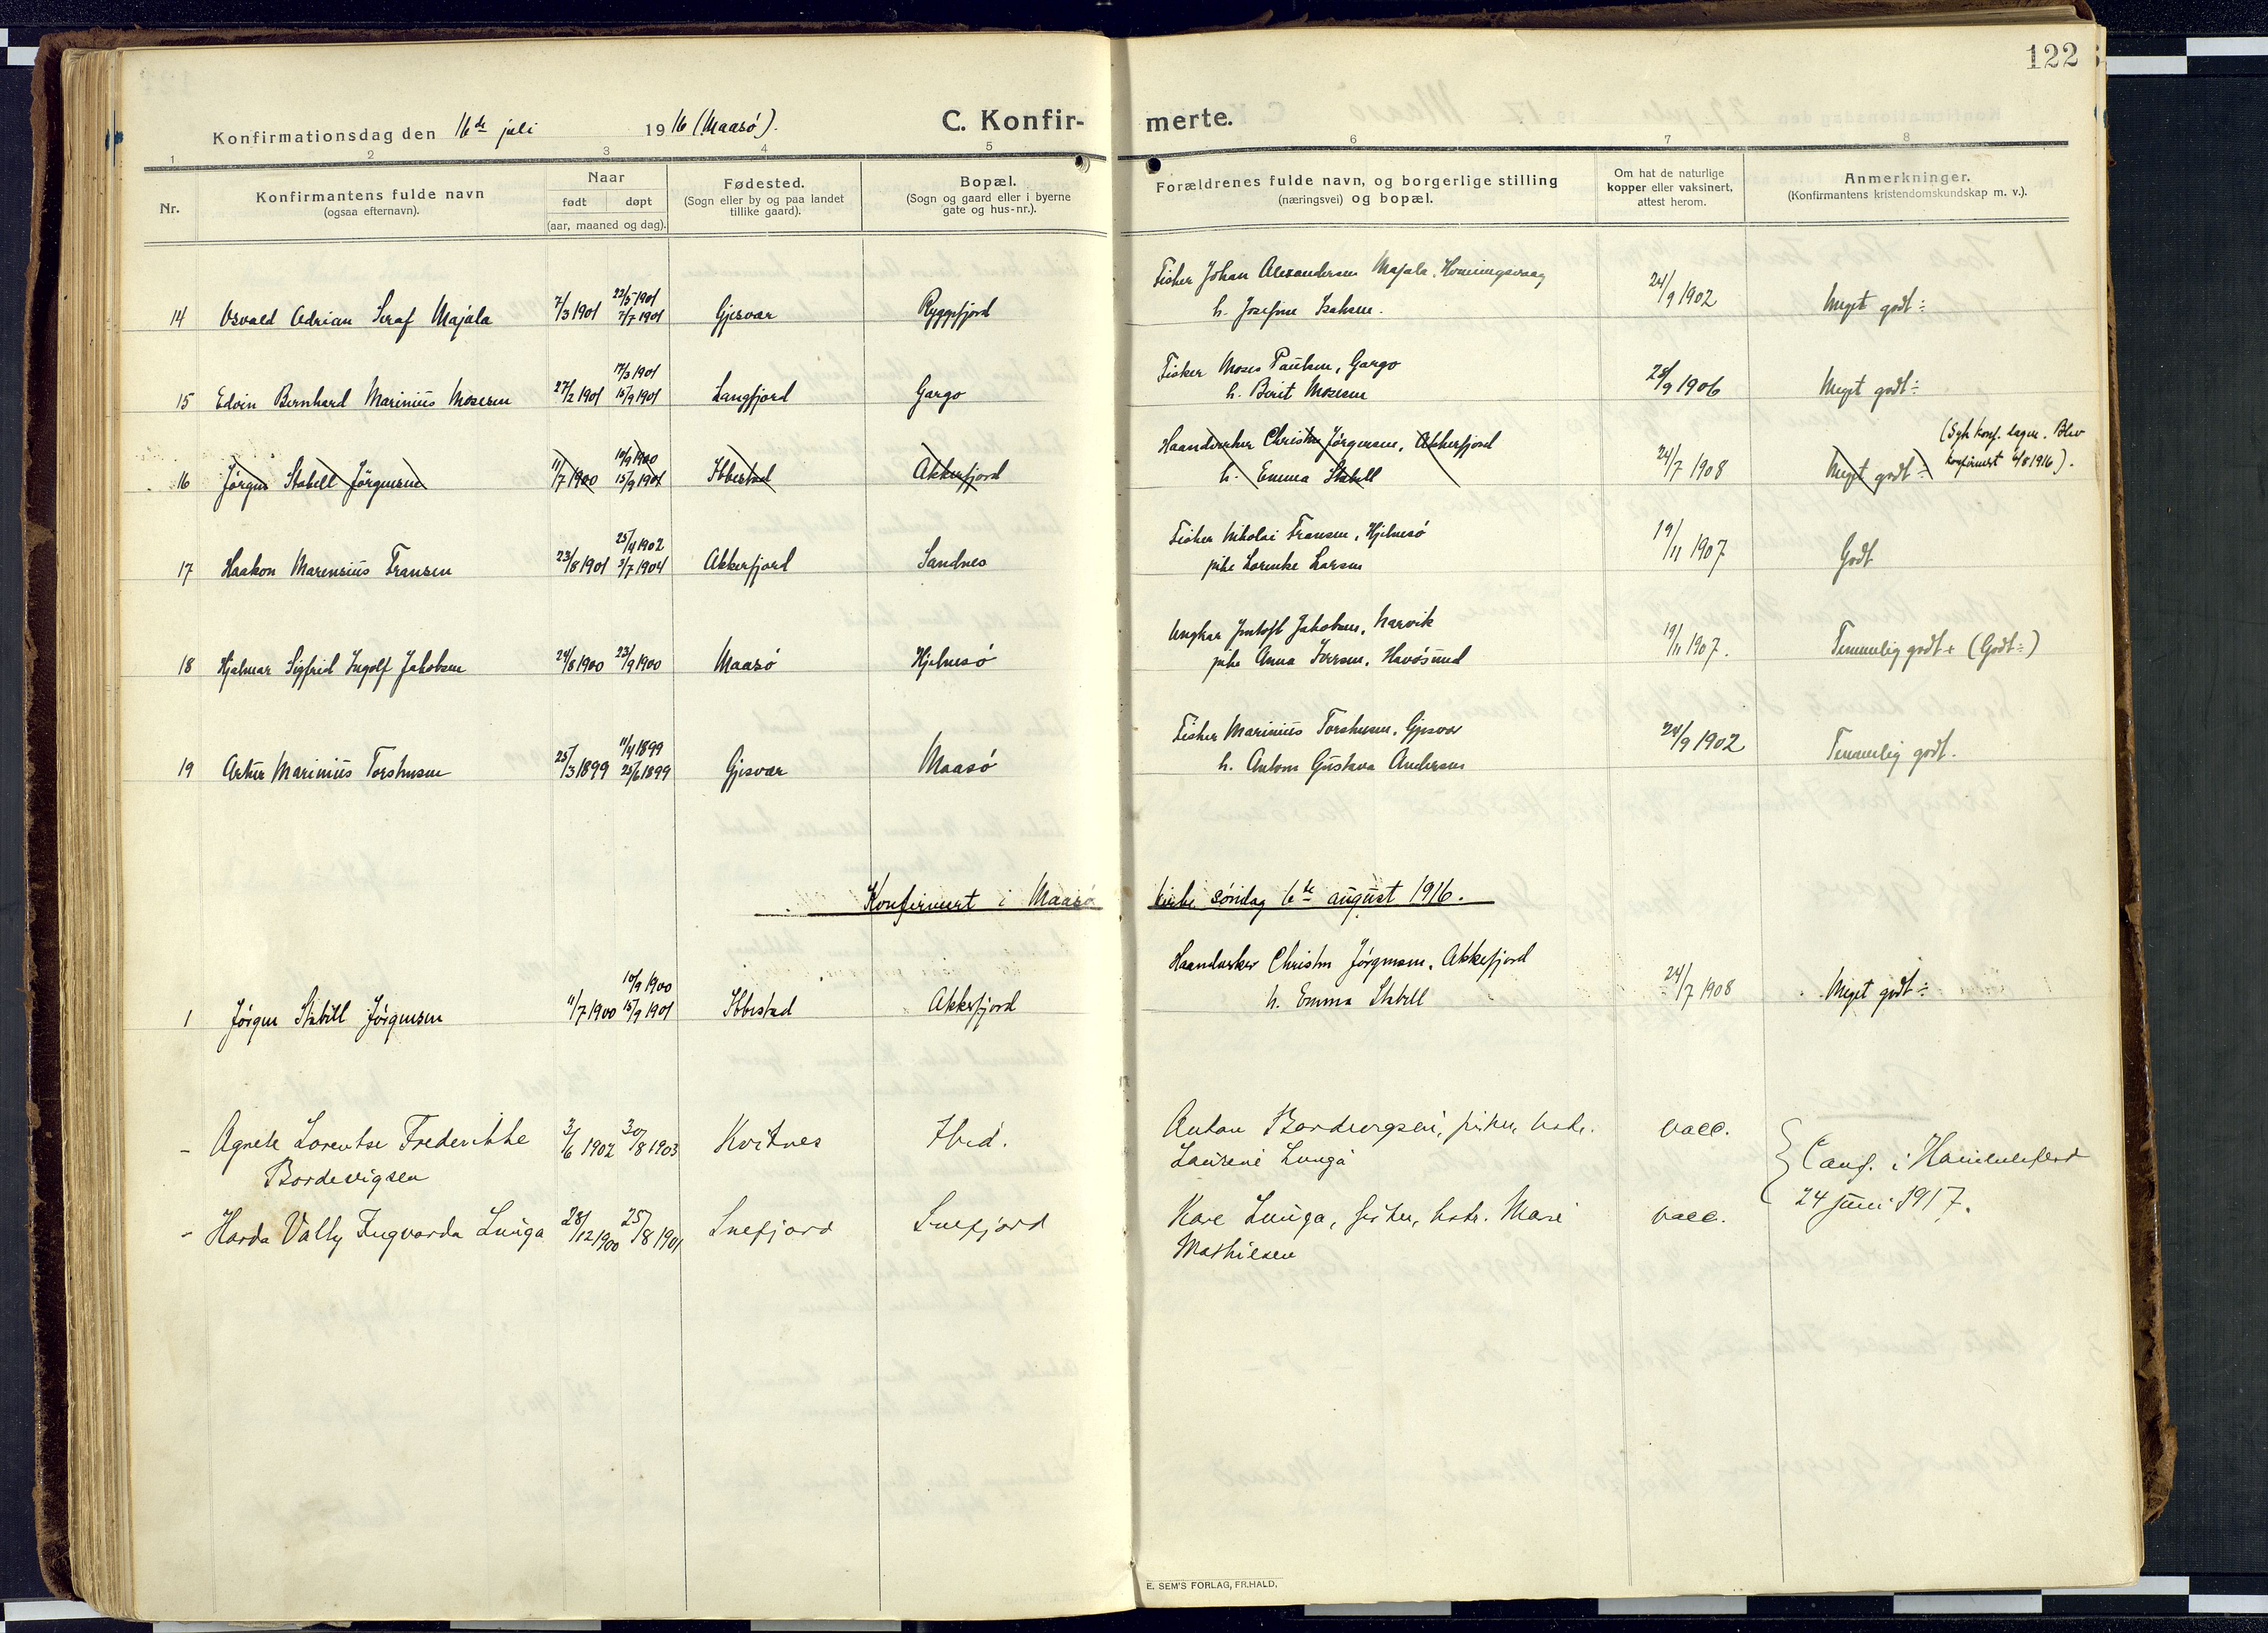 122
Konfirmationsdag den 16de juli 1916 (Maasö).
C. Konfirmerte.
1 2 3 4 5 6 7 8
Nr.
Konfirmantens fulde navn
(ogsaa efternavn).
Naar
født døpt
(aar, maaned og dag).
Fødested.
(Sogn eller by og paa landet
tillike gaard).
Bopæl.
(Sogn og gaard eller i byerne
gate og hus-nr.).
Forældrenes fulde navn, og borgerlige stilling
(næringsvei) og bopæl.
Om hat de naturlige
kopper eller vaksinert,
attest herom.
Anmerkninger.
(Konfirmantens kristendomskundskap m. v.).
Fisker Johan Alexandersen Majala, Honningsvaag
23/5 1901
14 Osvald Adrian Seraf Majala 7/3 1901 7/7 1901 Gjesvær Ryggefjord h. Josefine Isaksen. 24/9 1902 Meget godt÷
17/3 1901 Fisker Moses Paulsen, Gargo
15 Edvin Bernhard Marinius Mosesen 27/2 1901 15/9 1901 Langfjord Gargo h. Berit Mosesen 28/9 1906 Meget godt÷
10/9 1900 Haandverker Christen Jörgensen, Akkerfjord (Syk konf. dagen. Blev
16 Jörgen Stabell Jörgensen 11/7 1900 15/9 1901 Ibbestad Akkerfjord h. Emma Stabell 24/7 1908 Meget godt÷ konfirmert 6/8 1916).
25/4 1902 Fisker Nikolai Fransen, Hjelmsö
17 Haakon Marensius Fransen 23/8 1901 3/7 1904 Akkerfjord Sandnes pike Lorenke Larsen 19/11 1907 Godt
Ungkar Jakobsen, Narvik
18 Hjalmar Sigfrid Ingolf Jakobsen 24/8 1900 23/9 1900 Maasö Hjelmsö pike Anna Iversen, Havösund 19/11 1907. Temmelig godt+ (Godt÷)
11/4 1899 Fisker Marinius Torstensen, Gjesvær
19 Artur Marinius Torstensen 25/3 1899 25/6 1899 Gjesvær Maasö h. Antona Gustava Andersen 24/9 1902 Temmelig godt.
Konfirmert i Maasö kirke söndag 6te august 1916.
10/9 1900 Haandverker Christen Jörgensen, Akkefjord
1 Jörgen Stabell Jörgensen 11/7 1900 15/9 1901 Ibbestad Akkerfjord h. Emma Stabell 24/7 1908 Meget godt÷
- Agnete Lorentse Frederikke 3/6 1902 30/8 1903 Kvitnes Ibid. Anton Bordevigsen, fisker, hustr. vacc.
Bordevigsen Laurine Lunga
- Harda Vally Ingvarda Lunga 28/12 1900 25/8 1901 Snefjord Snefjord Kare Lunga, fisker, hustr. Mari vacc.
Mathilsen
Conf. i Hammerfest
24 juni 1917.
E. SEM'S FORLAG, FR.HALD.